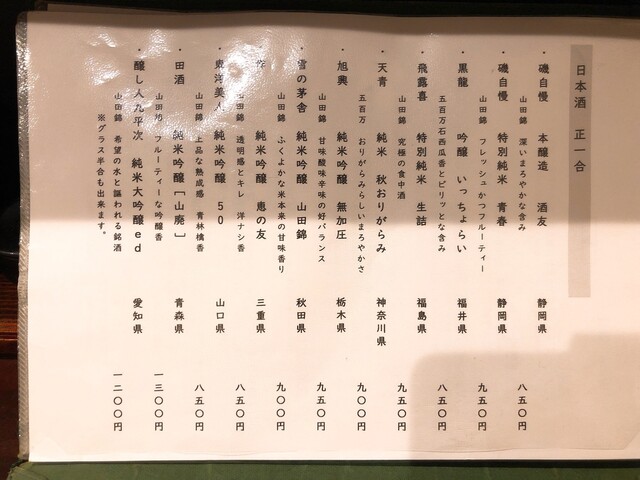 日本酒 正一合
・磯自慢 本醸造 酒友 静岡県
山田錦 深いまろやかな含み 八五〇円
・磯自慢 特別純米 青春 静岡県
山田錦 フレッシュかつフルーティー 九五〇円
・黒龍 吟醸 いっちょらい 福井県
五百万石西瓜香とピリッとな含み 八五〇円
・飛露喜 特別純米 生詰 福島県
山田錦 究極の食中酒 九五〇円
・天青 純米 秋おりがらみ 神奈川県
五百万 おりがらみらしいまろやかさ 九〇〇円
・旭興 純米吟醸 無加圧 栃木県
山田錦 甘味酸味辛味の好バランス 九五〇円
・雪の茅舎 純米吟醸 山田錦 秋田県
山田錦 ふくよかな米本来の甘味香り 九〇〇円
純米吟醸 恵の友 三重県
山田錦 透明感とキレ 洋ナシ香 八五〇円
・東洋美人 純米吟醸 50 山口県
山田錦 上品な熟成感 青林檎香 八五〇円
・田酒 純米吟醸[山廃] 青森県
山田錦 フルーティーな吟醸香 一三〇〇円
・醸し人九平次 純米大吟醸ed 愛知県
山田錦 希望の水と謳われる銘酒 一二〇〇円
※グラス半合も出来ます。